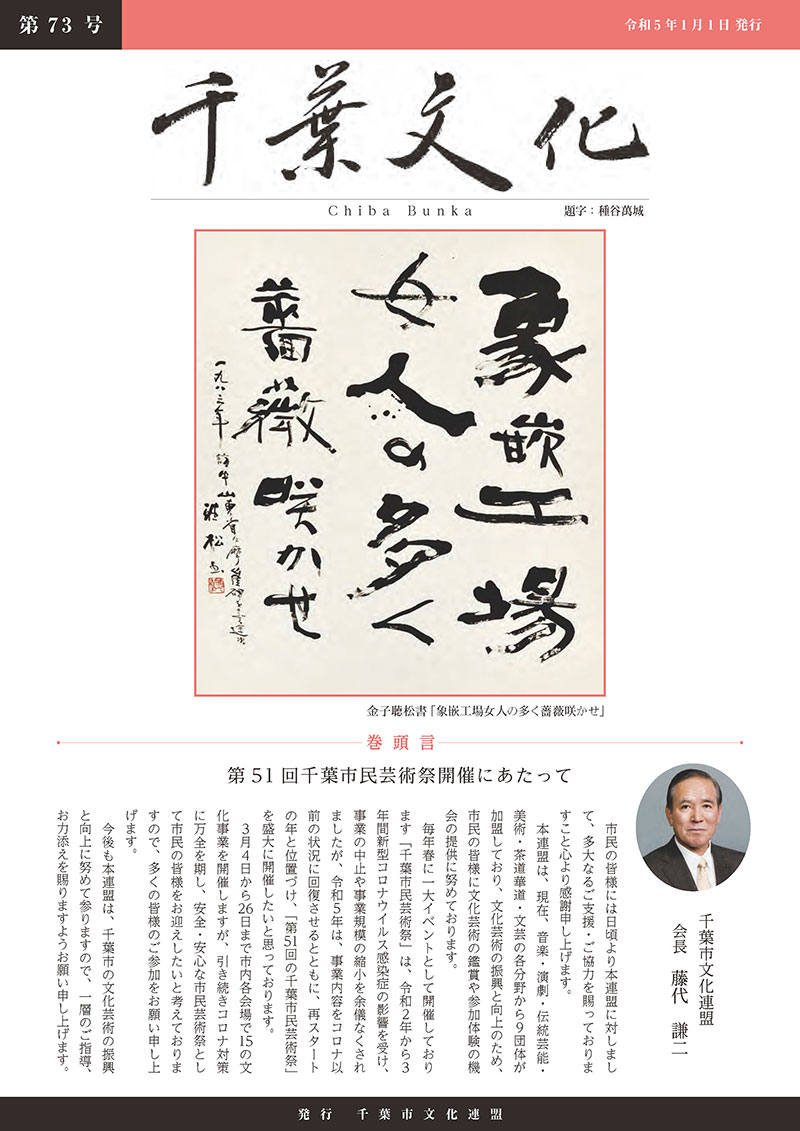 第73号
令和5年1月1日 発行
千葉文化
Chiba Bunka
題字：種谷萬城
象嵌工場
女人の多く
薔薇咲かせ
一九八三年
聴松
金子聴松書「象嵌工場女人の多く薔薇咲かせ」
巻頭言
第51回千葉市民芸術祭開催にあたって
千葉市文化連盟
会長　藤代　謙二
市民の皆様には日頃より本連盟に対しまし
て、多大なるご支援・ご協力を賜っておりま
すこと心より感謝申し上げます。
本連盟は、現在、音楽・演劇・伝統芸能・
美術・茶道華道・文芸の各分野から9団体が
加盟しており、文化芸術の振興と向上のため、
市民の皆様に文化芸術の鑑賞や参加体験の機
会の提供に努めております。
毎年春に一大イベントとして開催しており
ます「千葉市民芸術祭」は、令和2年から3
年間新型コロナウイルス感染症の影響を受け、
事業の中止や事業規模の縮小を余儀なくされ
ましたが、令和5年は、事業内容をコロナ以
前の状況に回復させるとともに、再スタート
の年と位置づけ、「第51回の千葉市民芸術祭」
を盛大に開催したいと思っております。
3月4日から26日まで市内各会場で15の文
化事業を開催しますが、引き続きコロナ対策
に万全を期し、安全・安心な市民芸術祭とし
て市民の皆様をお迎えしたいと考えておりま
すので、多くの皆様のご参加をお願い申し上
げます。
今後も本連盟は、千葉市の文化芸術の振興
と向上に努めて参りますので、一層のご指導、
お力添えを賜りますようお願い申し上げます。
発行　千葉市文化連盟